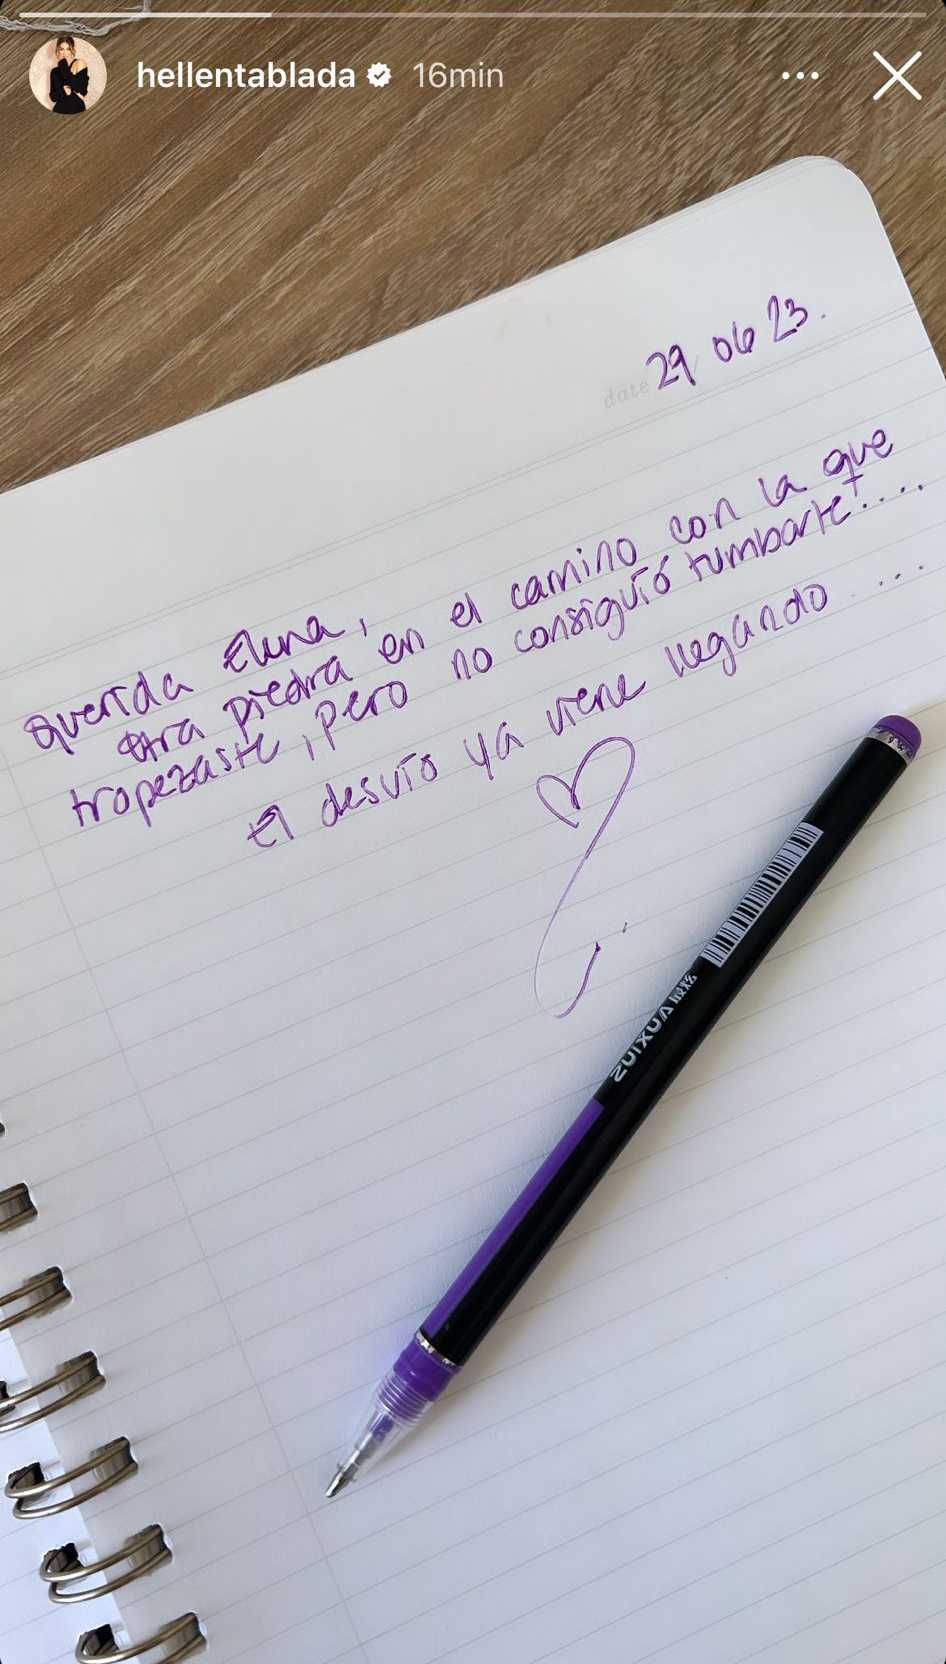 hellentablada 16min
29 06 23.
date
querida Elena,
otra piedra en el camino con la que
tropezaste, pero no consiguió tumbarte....
El desvío ya viene llegando ....
ZUIXUA